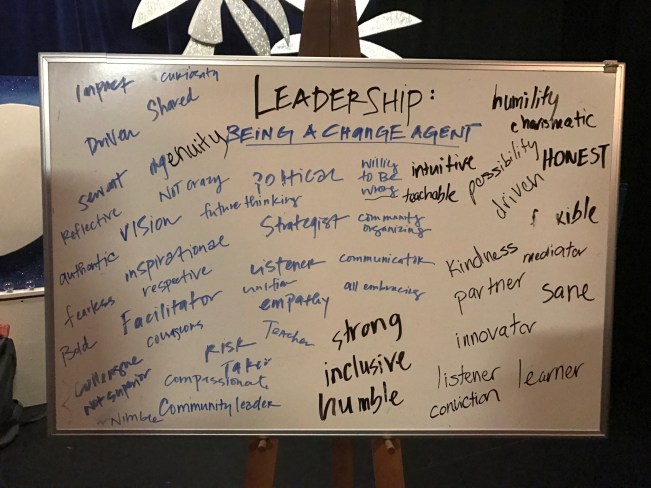 LEADERSHIP:
BEING A CHANGE AGENT
Impact
curiosity
Driven
Shared
servant
ingenuity
Reflective
Not crazy
Vision
future thinking
political
willing
to Be
wrong
intuitive
teachable
humility
charismatic
possibility
driven
HONEST
Strategist
community
organizing
authentic
inspirational
respective
Listener
communicator
kindness
mediator
fearless
Facilitator
unifier
empathy
all embracing
partner
SANE
Bold
Teacher
strong
innovator
colleague
not superior
RISK
Taker
compassionate
inclusive
listener
learner
Nimble
Community leader
humble
conviction